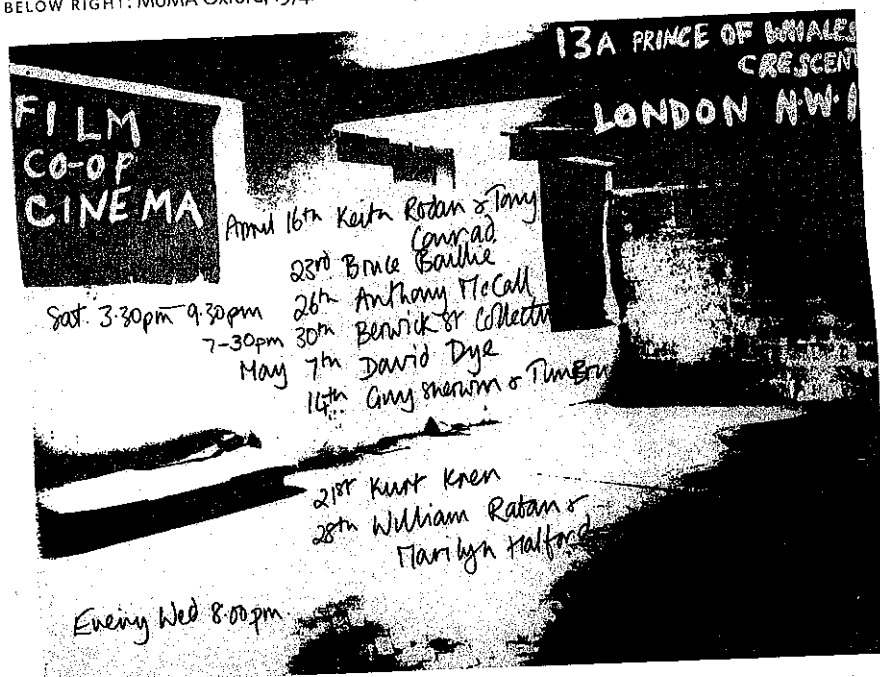 BELOW RIGHT: MoMA Oxford, 1974.
13A PRINCE OF WHALES
CRESCENT
LONDON N·W·1
FILM
CO-OP
CINEMA
April 16th Keith Rodan & Tony
Conrad
23rd Bruce Baillie
Sat. 3.30pm 9.30pm 26th Anthony McCall
7-30pm 30th Berwick St Collectiv
May 7th David Dye
14th Guy Sherwin & Tim Bru
21st Kurt Kren
28th William Raban &
Marilyn Halford
Every Wed 8.00pm.